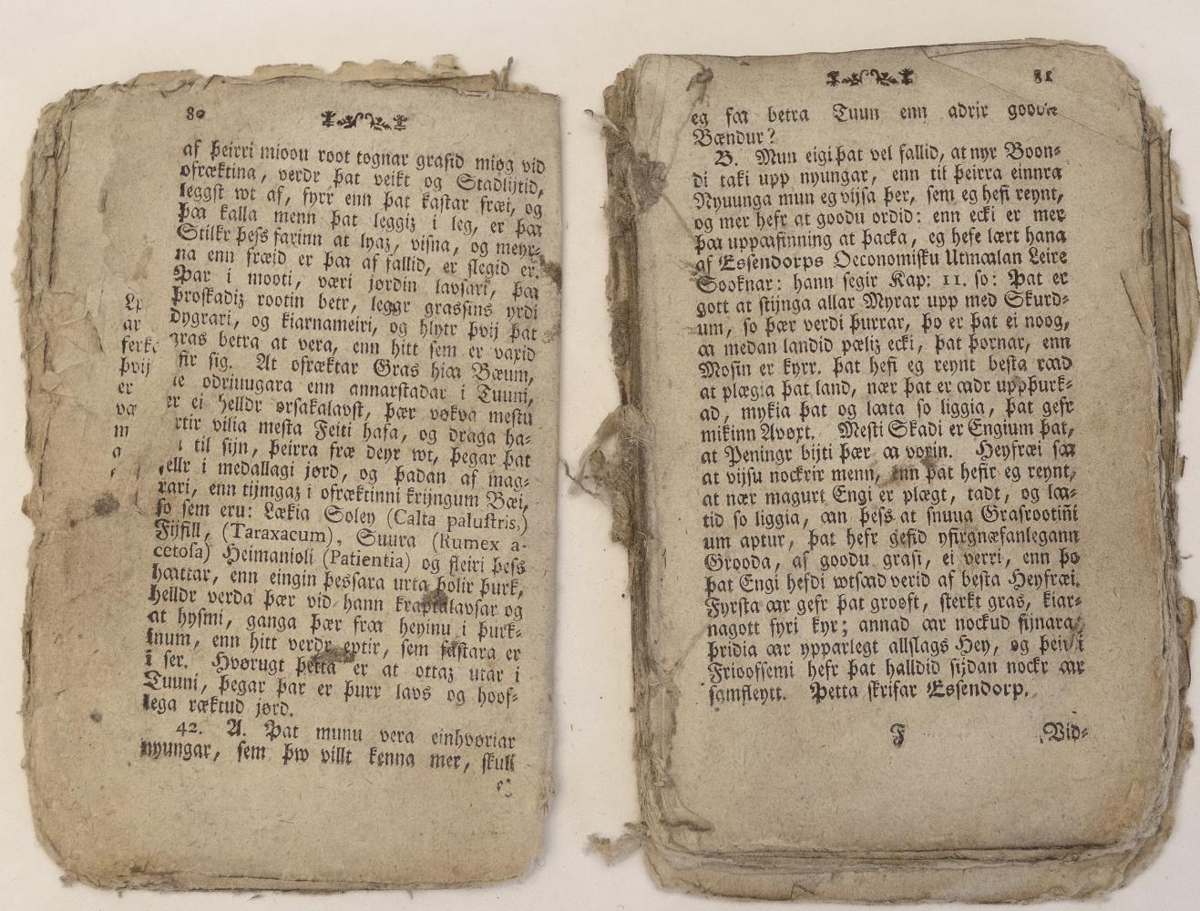 80
af þeirri mioou root tognar grasid miøg vid
ofræktina, verdr þat veikt og Stadlijtid,
leggst wt af, fyrr enn þat kastar fræi, og
þaa kalla menn þat leggiz i leg, er þaa
Stilkr þess farinn at lyaz, visna, og meyr-
na enn fræid er þaa af fallid, er slegid er.
Þar i mooti, væri jørdin lavsari, þaa
þroskadiz rootin betr, leggr grassins yrdi
dygrari, og kiarnameiri, og hlytr þvij þat
gras betra at vera, enn hitt sem er vaxid
fir sig. At ofræktar Gras hiaa Bæum,
odriuugara enn annarstadar i Tuuni,
er ei helldr orsakalavst, þær vøkva mestu
rtir vilia mesta Feiti hafa, og draga ha-
til sijn, þeirra fræ deyr wt, þegar þat
ellr i medallagi jørd, og þadan af mag-
rari, enn tijmgaz i ofræktinni krijngum Bæi,
so sem eru: Lækia Soley (Calta palustris,)
Fijfill, (Taraxacum), Suura (Rumex a-
cetosa) Heimanioli (Patientia) og fleiri þess
haattar, enn eingin þessara urta þolir þurk,
helldr verda þær vid hann kraptalavsar og
at hysmi, ganga þær fraa heyinu i þurk-
inum, enn hitt verdr eptir, sem fastara er
i ser. Hvørugt þetta er at ottaz utar i
Tuuni, þegar þar er þurr lavs og hoof-
lega ræktud jørd.
42. A. Þat munu vera einhvøriar
nyungar, sem þw villt kenna mer, skull
Lr
ar
ferk
þvij
er
væ
m
a
81
eg faa betra Tuun enn adrir goodir
Bændur?
B. Mun eigi þat vel fallid, at nyr Boon-
di taki upp nyungar, enn til þeirra einnra
Nyuunga mun eg vijsa þer, sem eg hefi reynt,
og mer hefr at goodu ordid: enn ecki er mer
þaa uppaafinning at þacka, eg hefe lært hana
af Essendorps Oeconomisku Utmaalan Leire
Sooknar: hann segir Kap: 11. so: Þat er
gott at stijnga allar Myrar upp med Skurd-
um, so þær verdi þurrar, þo er þat ei noog,
aa medan landid pæliz ecki, þat þornar, enn
Mosin er kyrr. Þat hefi eg reynt besta raad
at plægia þat land, nær þat er aadr uppþurk-
ad, mykia þat og laata so liggia, þat gefr
mikinn Avøxt. Mesti Skadi er Engium þat,
at Peningr bijti þær aa vorin. Heyfræi saa
at vijsu nockrir menn, enn þat hefir eg reynt,
at nær magurt Engi er plægt, tadt, og laa-
tid so liggia, aan þess at snuua Grasrootiñi
um aptur, þat hefr gefid yfirgnæfanlegann
Grooda, af goodu grasi, ei verri, enn þo
þat Engi hefdi wtsaad verid af besta Heyfræi.
Fyrsta aar gefr þat grooft, sterkt gras, kiar-
nagott fyri kyr; annad aar nockud fijnara,
þridia aar ypparlegt allslags Hey, og þeirri
Frioofsemi hefr þat halldid sijdan nockr aar
samfleytt. Þetta skrifar Essendorp.
F
Vid-